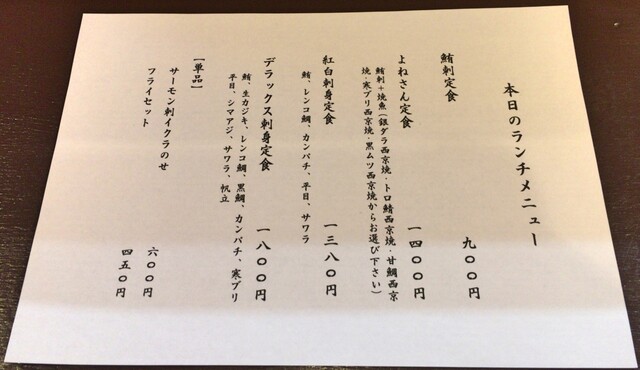 本日のランチメニュー
鮪刺定食 九〇〇円
よねさん定食 一四〇〇円
鮪刺+焼魚(銀ダラ西京焼・トロ鯖西京焼・甘鯛西京
焼・寒ブリ西京焼・黒ムツ西京焼からお選び下さい)
紅白刺身定食 一三八〇円
鮪、レンコ鯛、カンパチ、平目、サワラ
デラックス刺身定食 一八〇〇円
鮪、生カジキ、レンコ鯛、黒鯛、カンパチ、寒ブリ
平目、シマアジ、サワラ、帆立
【単品】
サーモン刺イクラのせ 六〇〇円
フライセット 四五〇円